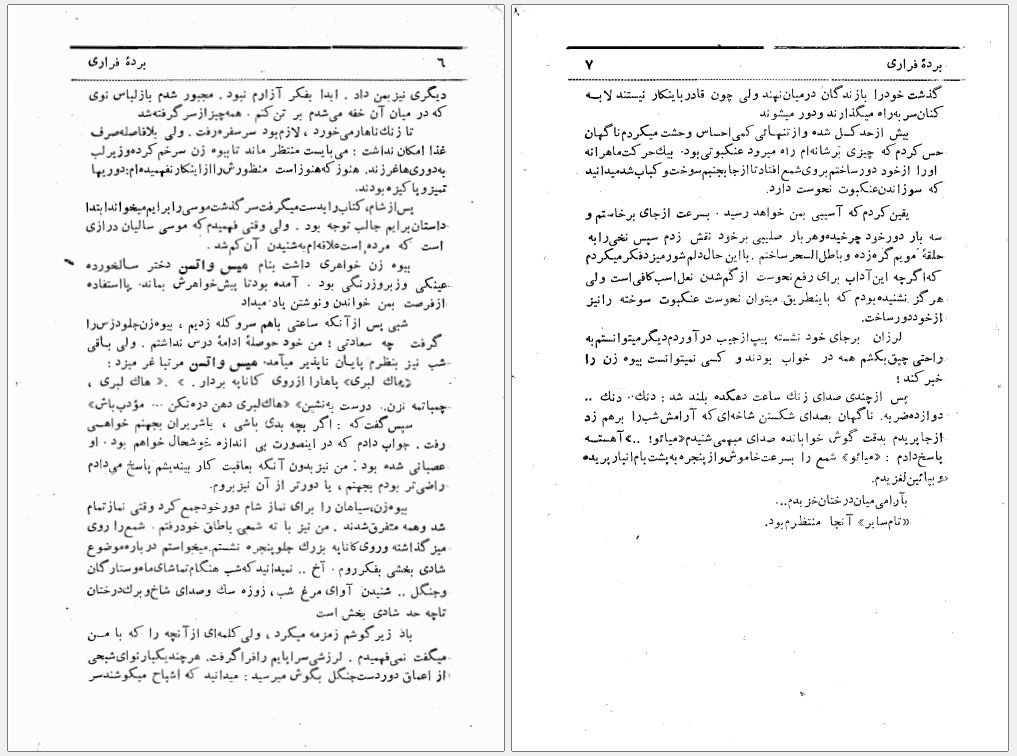 ۶ بردهٔ فراری
دیگری نیز بمن داد . ابدا بفکر آزارم نبود . مجبور شدم باز لباس نوی
که در میان آن خفه می‌شدم بر تن‌کنم . همه چیز از سر گرفته شد
تا زنك ناهار می‌خورد ، لازم بود سر سفره رفت . ولی بلافاصله صرف
غذا امکان نداشت : می‌بایست منتظر ماند تا بیوه زن سر خم کرده و زیر لب
به دوری‌ها غر زند. هنوز که هنوز است منظورش را از اینکار نفهمیده‌ام: دوریها
تمیز و پاکیزه بودند.
پس از شام، کتاب را بدست میگرفت سرگذشت موسی را برایم میخواند ابتدا
داستان برایم جالب توجه بود . ولی وقتی فهمیدم که موسی سالیان درازی
است که مرده است علاقه‌ام به شنیدن آن کم شد .
بیوه زن خواهری داشت بنام میس واتسن دختر سالخورده
عینکی وزبر و زرنگی بود . آمده بود تا پیش خواهرش بماند. با استفاده
از فرصت بمن خواندن و نوشتن یاد میداد
شبی پس از آنکه ساعتی باهم سر و کله زدیم ، بیوه زن جلو درس را
گرفت چه سعادتی ! من خود حوصلهٔ ادامهٔ درس نداشتم . ولی باقی
شب نیز بنظرم پایان ناپذیر میآمد. میس واتسن مرتبا غر میزد :
«هاك لبری» پاهارا از روی کاناپه بردار . » .« هاك لبری ،
چمباتمه نزن. درست به‌نشین» «هاك لبری دهن دره نکن ... مؤدب باش»
سپس گفت که : اگر بچه بدی باشی ، باشریران بجهنم خواهی
رفت . جواب دادم که در اینصورت بی اندازه خوشحال خواهم بود . او
عصبانی شده بود : من نیز بدون آنکه بعاقبت کار بیندیشم پاسخ می‌دادم
راضی‌تر بودم بجهنم ، یا دورتر از آن نیز بروم.
بیوه زن، سیاهان را برای نماز شام دور خود جمع کرد وقتی نماز تمام
شد و همه متفرق شدند . من نیز با ته شمعی باطاق خود رفتم . شمع را روی
میز گذاشته و روی کاناپه بزرك جلو پنجره نشستم. میخواستم در باره موضوع
شادی بخشی بفکر روم . آخ .. نمیدانید که شب هنگام تماشای ماه و ستارگان
و جنگل .. شنیدن آوای مرغ شب، زوزه سك و صدای شاخ و برك درختان
تا چه حد شادی بخش است
باد زیر گوشم زمزمه میکرد ، ولی کلمه‌ای از آنچه را که با من
میگفت نمی‌فهمیدم . لرزشی سراپایم را فرا گرفت. هر چند یکبار نوای شبحی
از اعماق دور دست جنگل بگوش میرسید : میدانید که اشباح میکوشند سر
۷ بردهٔ فراری
گذشت خود را با زندگان در میان نهند ولی چون قادر باینکار نیستند لابه
کنان سر به راه میگذارند و دور میشوند
بیش از حد کسل شده و از تنهائی کمی احساس وحشت میکردم ناگهان
حس کردم که چیزی بر شانه‌ام راه میرود عنکبوتی بود. بیك حرکت ماهرانه
او را از خود دور ساختم بروی شمع افتاد تا از جا بجنبم سوخت و کباب شد میدانید
که سوزاندن عنکبوت نحوست دارد.
یقین کردم که آسیبی بمن خواهد رسید . بسرعت از جای برخاستم و
سه بار دور خود چرخیده و هر بار صلیبی بر خود نقش زدم سپس نخی را به
حلقهٔ مویم گره زده و باطل السحر ساختم . با این حال دلم شور میزد فکر میکردم
که اگر چه این آداب برای رفع نحوست از گم شدن نعل اسب کافی است ولی
هرگز نشنیده بودم که باینطریق میتوان نحوست عنکبوت سوخته را نیز
از خود دور ساخت.
لرزان بر جای خود نشسته پیپ از جیب در آوردم دیگر میتوانستم به
راحتی چپق بکشم همه در خواب بودند و کسی نمیتوانست بیوه زن را
خبر کند !
پس از چندی صدای زنك ساعت دهکده بلند شد : دنك.. دنك ..
دوازده ضربه. ناگهان بصدای شکستن شاخه‌ای که آرامش شب را برهم زد
از جا پریدم بدقت گوش خوابانده صدای مبهمی شنیدم «میائو! ..» آهسته
پاسخ دادم : «میائو» شمع را بسرعت خاموش و از پنجره به پشت بام انبار پریده
و بپائین لغزیدم.
بآرامی میان درختان خزیدم..
«تام سایر» آنجا منتظرم بود.
۸